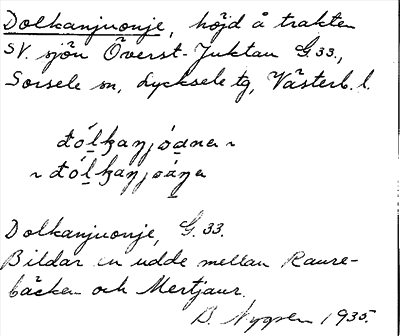 Dolkanjuonje, höjd å trakten
SV. sjön Överst-Juktan G.33.,
Sorsele sn, Lycksele tg, Västerb. l.
đól̠ꜧanjòa̠ne ~
~ đól̠ꜧanjoáŋe
Dolkanjuonje, G.33.
Bildar en udde mellan Raure-
bäcken och Mertjaur.
B. Nygren 1935.